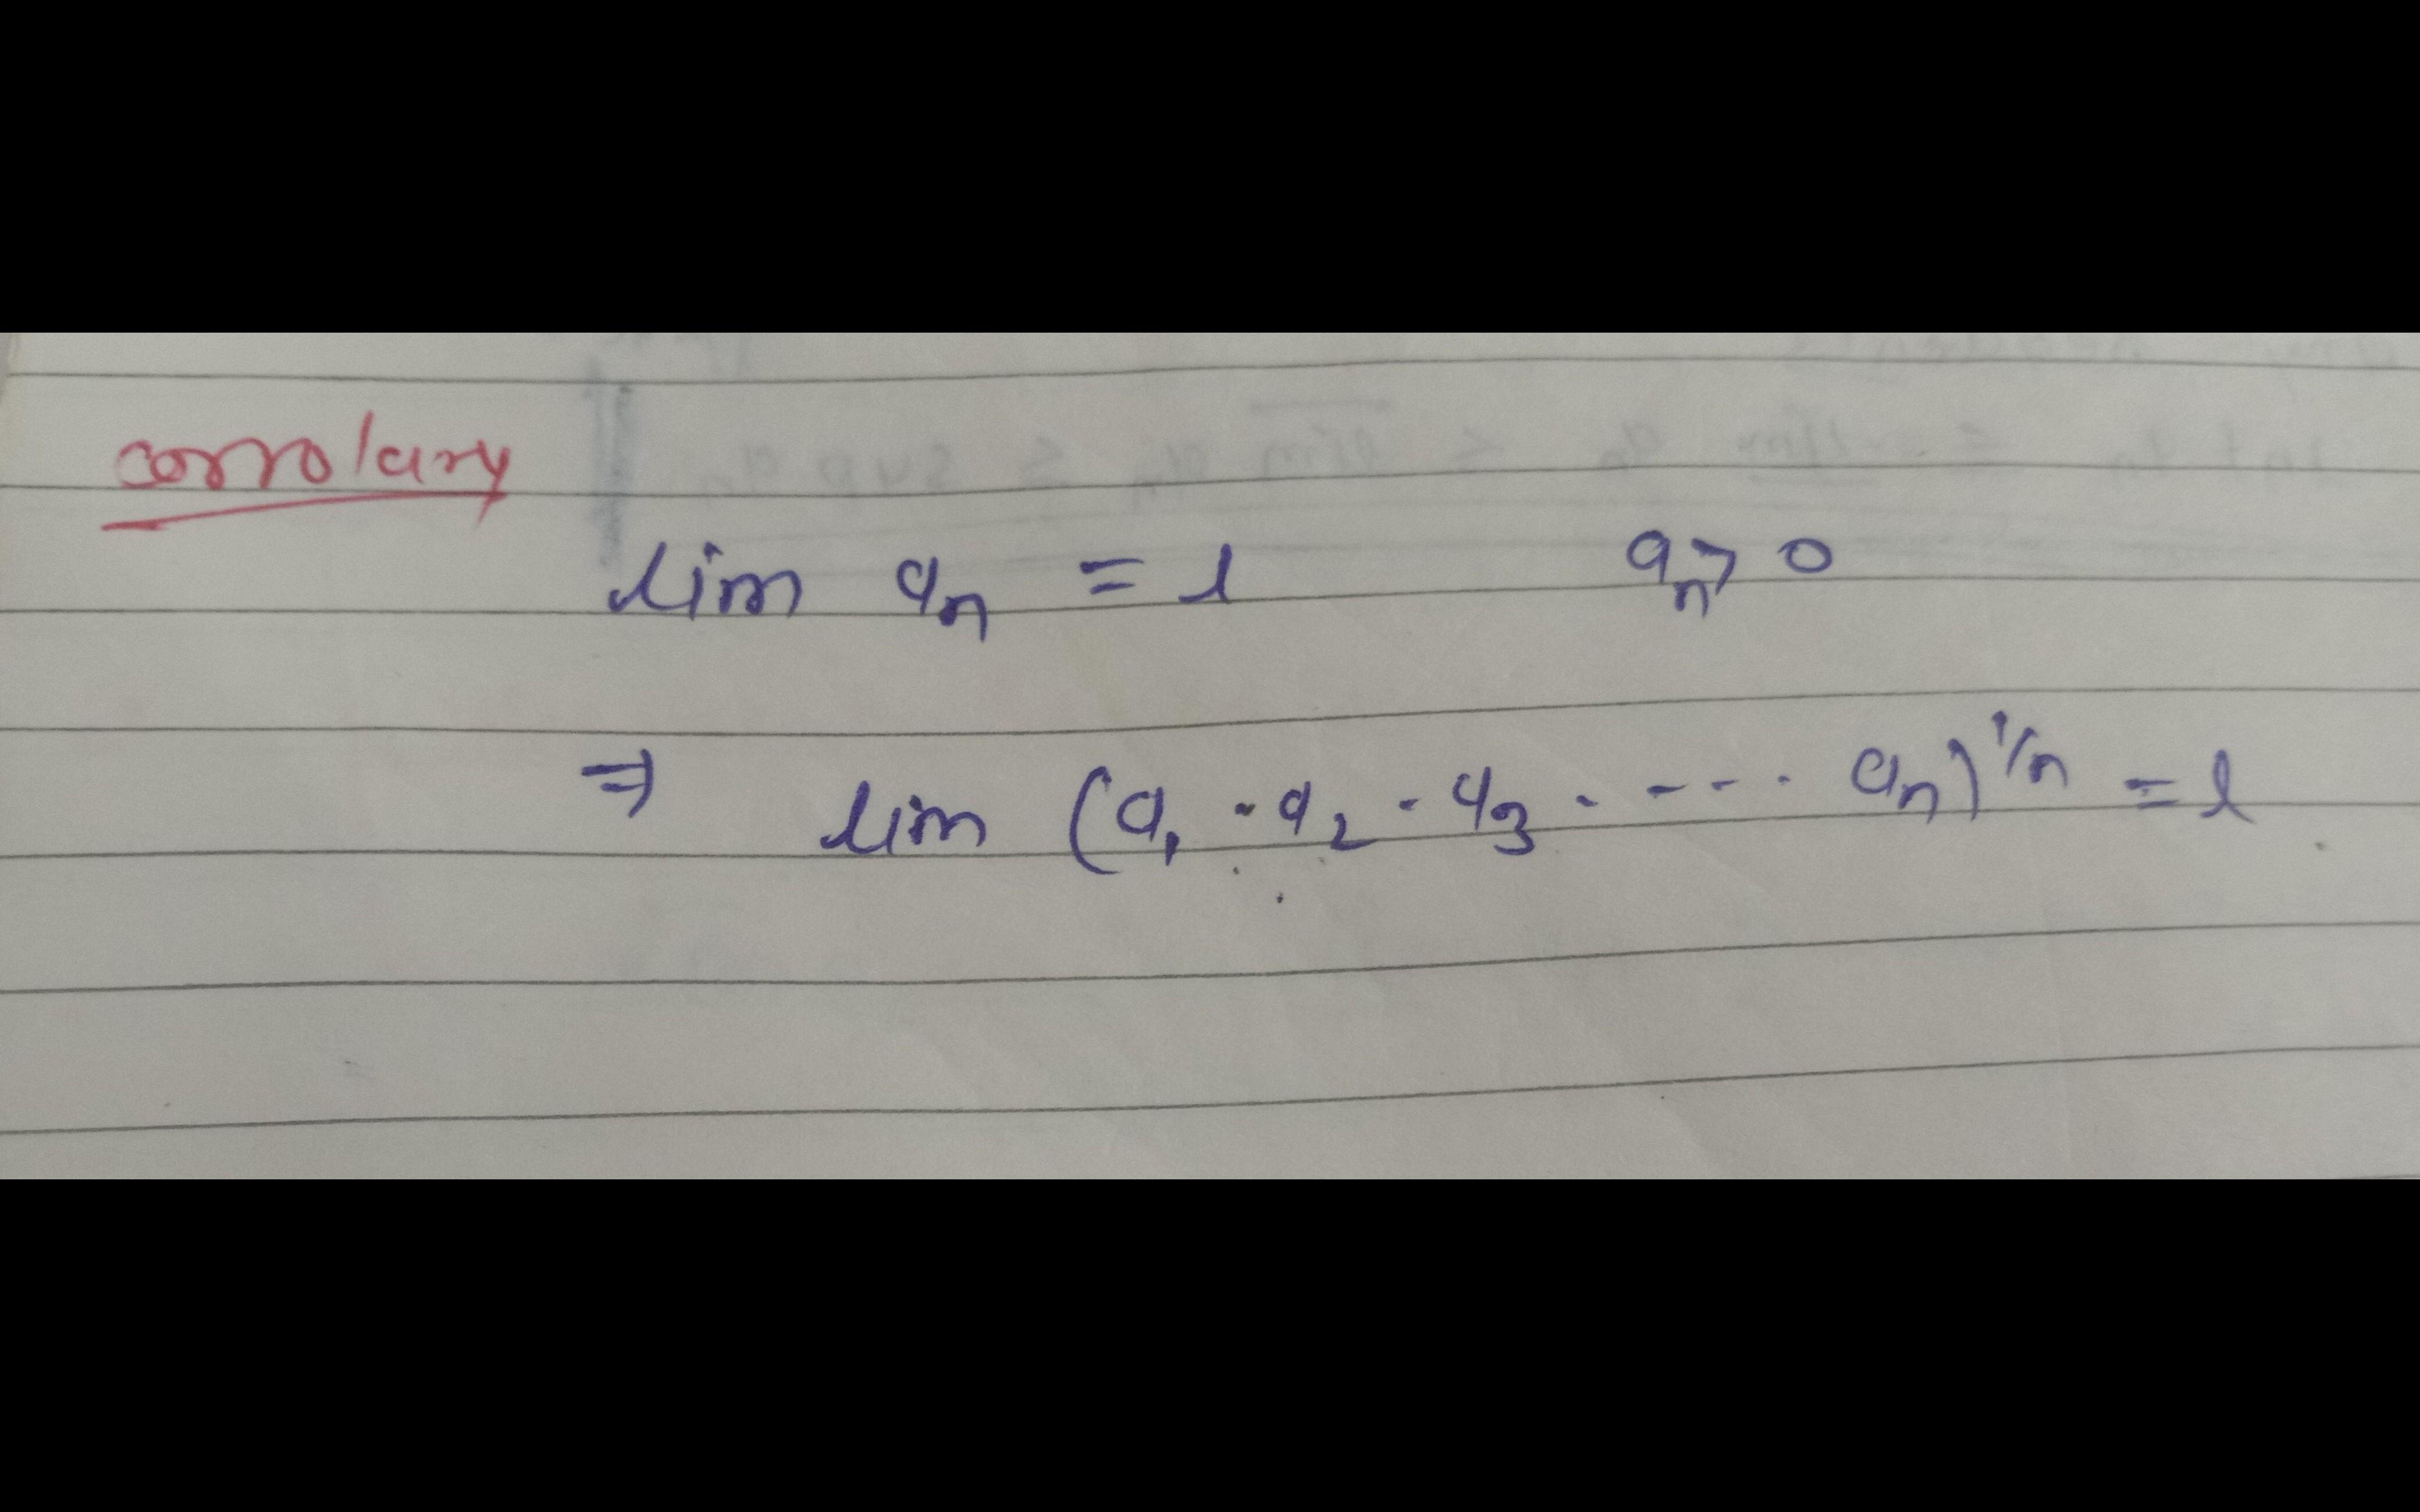 corrolary
lim aₙ = l aₙ > 0
⇒ lim (a₁ · a₂ · a₃ · - - - · aₙ)^1/n = l